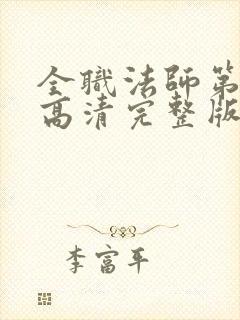 全職法師第
高清完整版
李富平